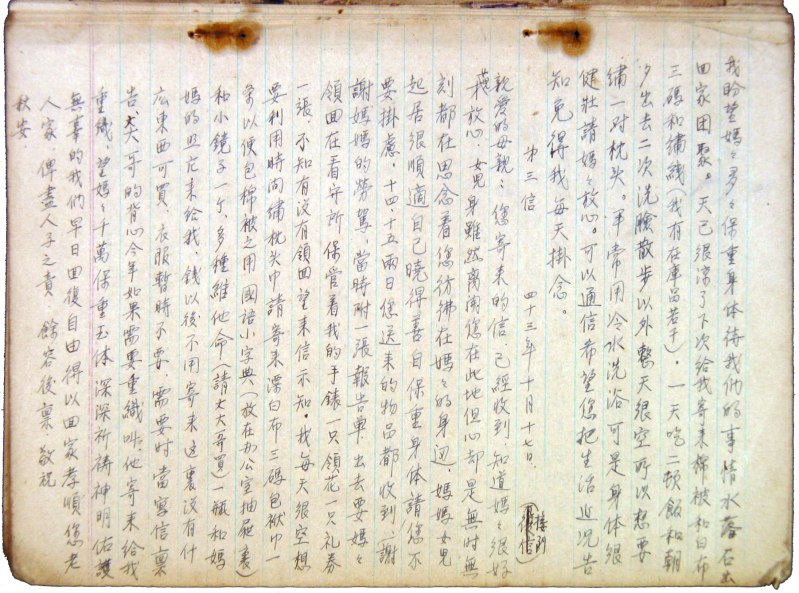 我盼望媽々多々保重身体待我們的事情水落石出
回家团聚。天已很涼了下次給我寄來棉被和白布
三碼和繡綫(我有在庫品若干)，一天吃二頓飯和朝
夕出去二次洗臉散步以外整天很空所以想要
繡一对枕头。平常用冷水洗浴可是身体很
健壯請媽々放心。可以通信希望您把生活近况告
知免得我每天掛念。
第三信 四十三年十月十七日.
親愛的母親：您寄來的信已經收到.知道媽々很好
放心.女児身雖然离開您在此地但心却是無时無
刻都在思念着您彷彿在媽々的身边.媽媽女児
起居很順適自己曉得善自保重身体請您不
要掛慮.十四.十五兩日您送来的物品都收到.謝
謝媽媽的勞駕.當時附一張報告單出去要媽々
領回在看守所保管着我的手錶一只領花一只礼券
一張.不知有没有領回望来信示知.我每天很空想
要利用時间繡枕头巾請寄来漂白布三碼包袱巾一
条以便包棉被之用国語小字典(放在办公室抽屜裏)
和小鏡子一个.多種維他命(請大大哥買)一瓶和媽
媽的照片来給我.錢以後不用寄来这裏没有什
広東西可買.衣服暫時不要 需要时當寫信稟
告大大哥的背心今年如果需要重織叫他寄来給我
重織.望媽々千萬保重玉体深深祈禱神明佑護
無辜的我們早日回復自由得以回家孝順您老
人家.俾盡人子之責 餘容後稟 敬祝
秋安